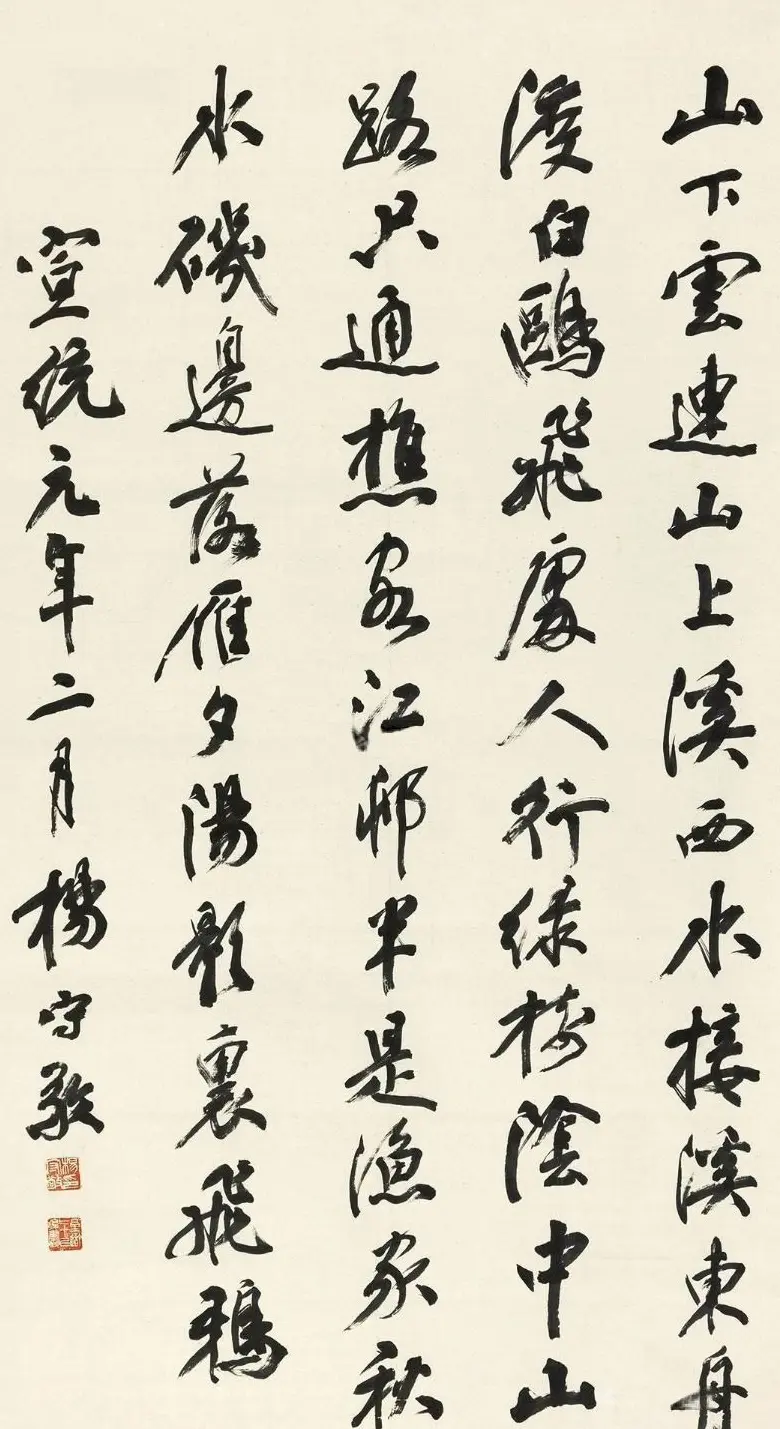 山下雲連山上溪西水接溪東舟
渡白鷗飛處人行綠樹陰中山
路只通樵客江邨半是漁家秋
水磯邊落雁夕陽影裏飛鴉
宣統元年二月楊守敬